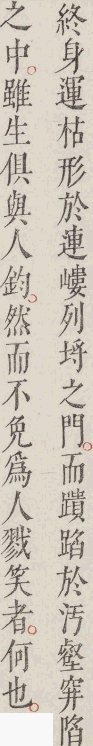 終身運枯形於連嶁列埒之門。而蹟踣於汚壑穽陷
之中。雖生俱與人鈞。然而不免爲人戮笑者。何也。